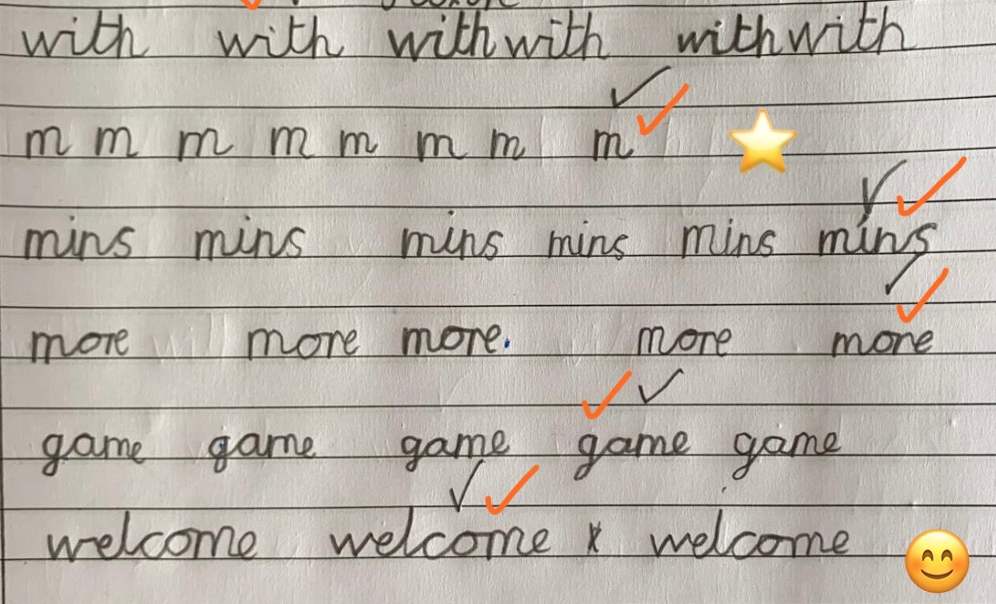 with with with with with with
m m m m m m m m
mins mins mins mins mins mins
more more more. more more
game game game game game
welcome welcome x welcome